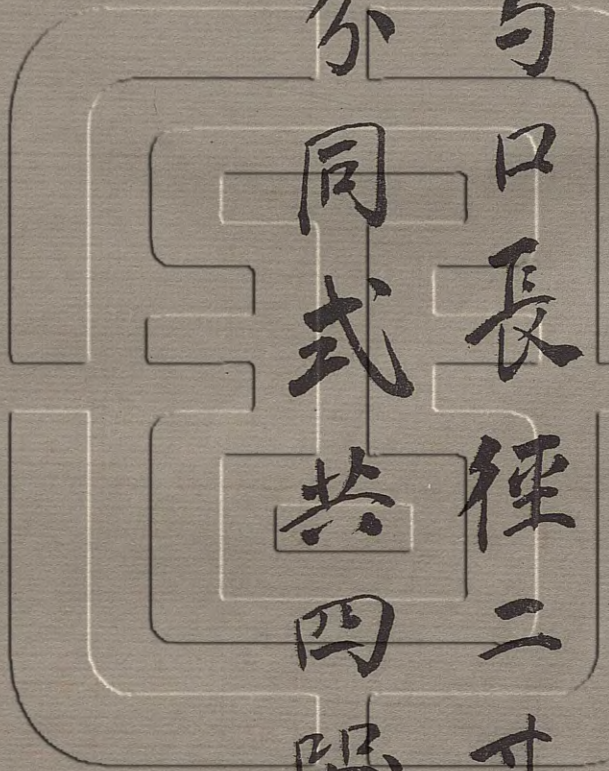 勺口長徑二寸
分同式共四